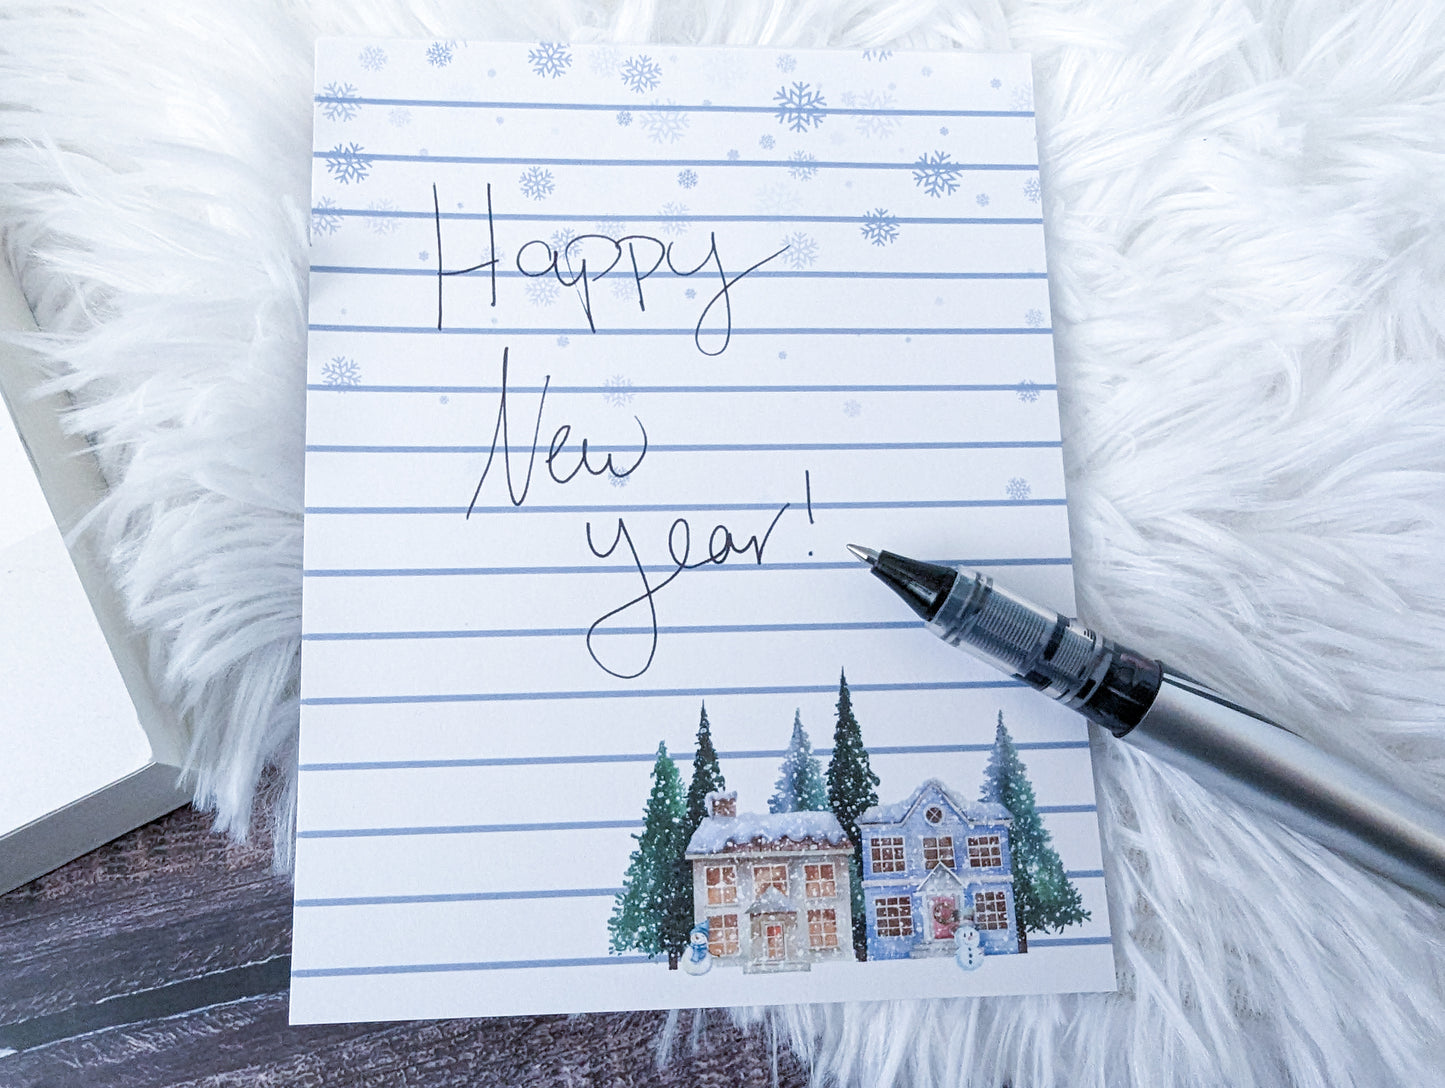 Happy
New
year!